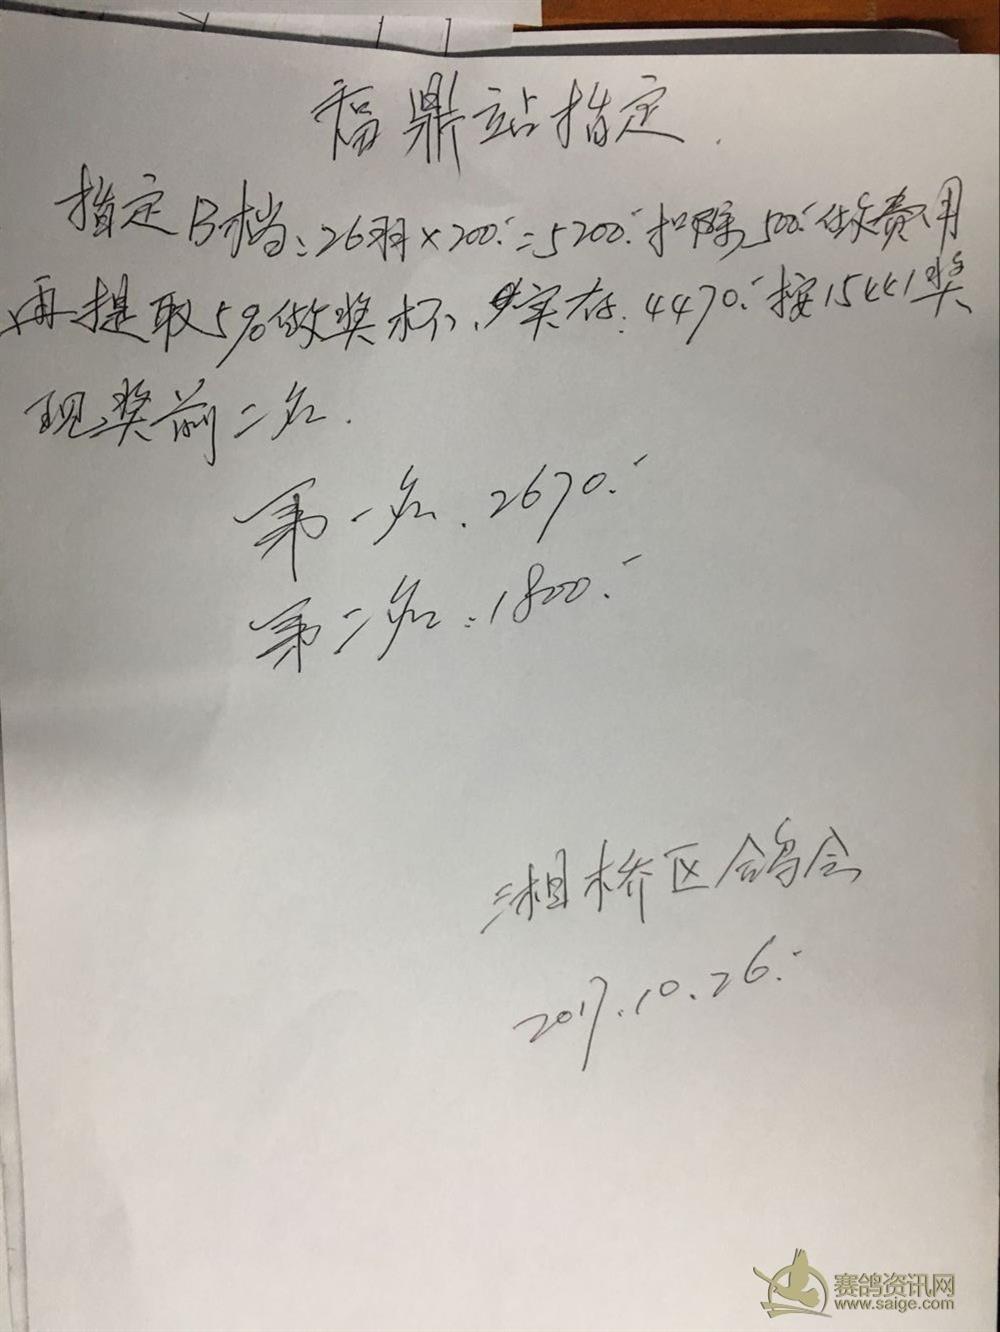 福鼎站指定.
指定B档:26羽×200.-=5200.-扣除500.-做费用
再提取5%做奖杯、实存:4470.-按15441奖
现奖前二名.
第一名.2670.-
第二名:1800.-
湘桥区鸽会
2017.10.26.-
赛鸽资讯网
www.saige.com